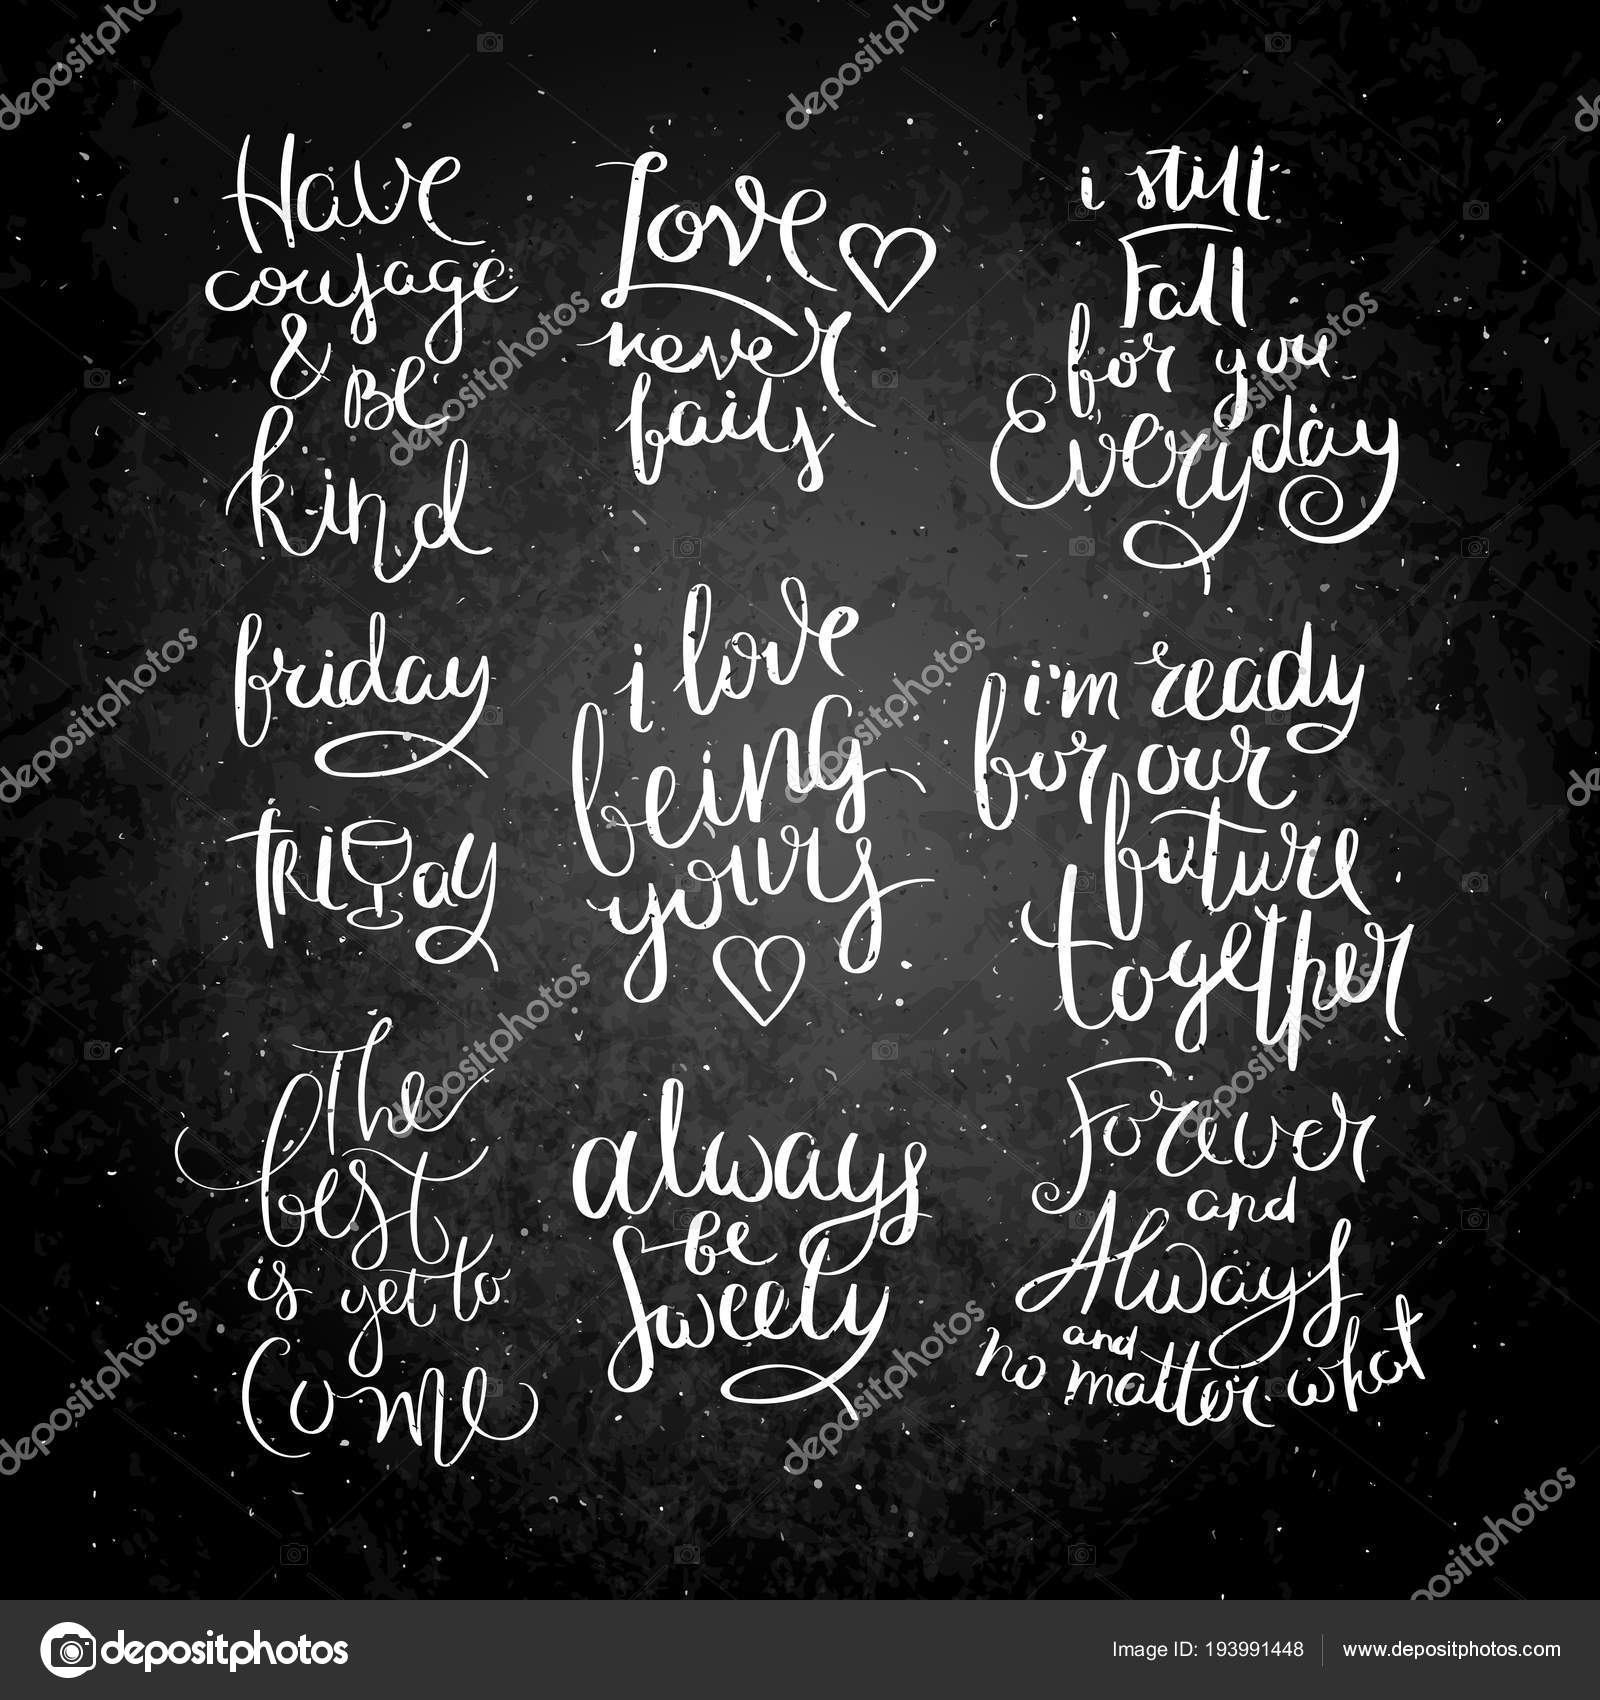 Have
courage
& Be
kind
Love
never
fails
i still
Fall
for you
Everyday
friday
FRiDay
i love
being
yours
i'm ready
for our
future
together
The
best
is yet to
Come
always
be
Sweety
Forever
and
Always
and
no matter what
depositphotos
Image ID: 193991448
www.depositphotos.com